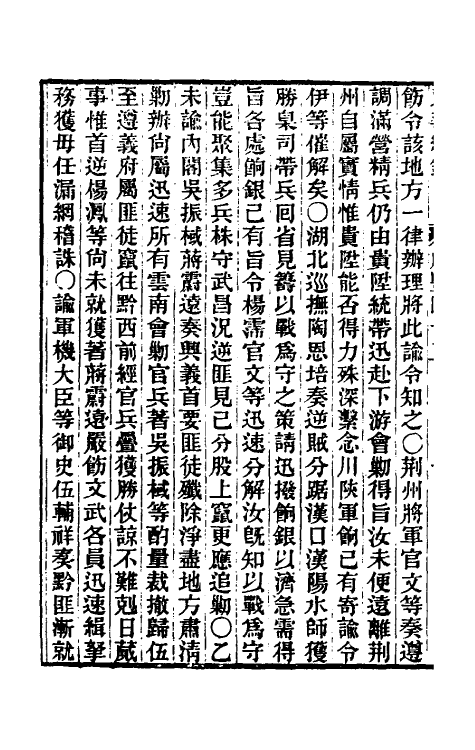 飭令該地方一律辦理將此諭令知之○荆州將軍官文等奏遵
調滿營精兵仍由貴陞統帶迅赴下游會勦得旨汝未便遠離荆
州自屬實情惟貴陞能否得力殊深繫念川陝軍餉已有寄諭令
伊等催解矣○湖北巡撫陶恩培奏逆賊分踞漢口漢陽水師獲
勝臬司帶兵囘省見籌以戰爲守之策請迅撥餉銀以濟急需得
旨各處餉銀已有旨令楊霈官文等迅速分解汝旣知以戰爲守
豈能聚集多兵株守武昌況逆匪見已分股上竄更應追勦○乙
未諭內閣吳振棫蔣霨遠奏興義首要匪徒殲除淨盡地方肅淸
勦辦尙屬迅速所有雲南會勦官兵著吳振棫等酌量裁撤歸伍
至遵義府屬匪徒竄往黔西前經官兵疊獲勝仗諒不難剋日蕆
事惟首逆楊鳯等尙未就獲著蔣霨遠嚴飭文武各員迅速緝拏
務獲毋任漏網稽誅○諭軍機大臣等御史伍輔祥奏黔匪漸就